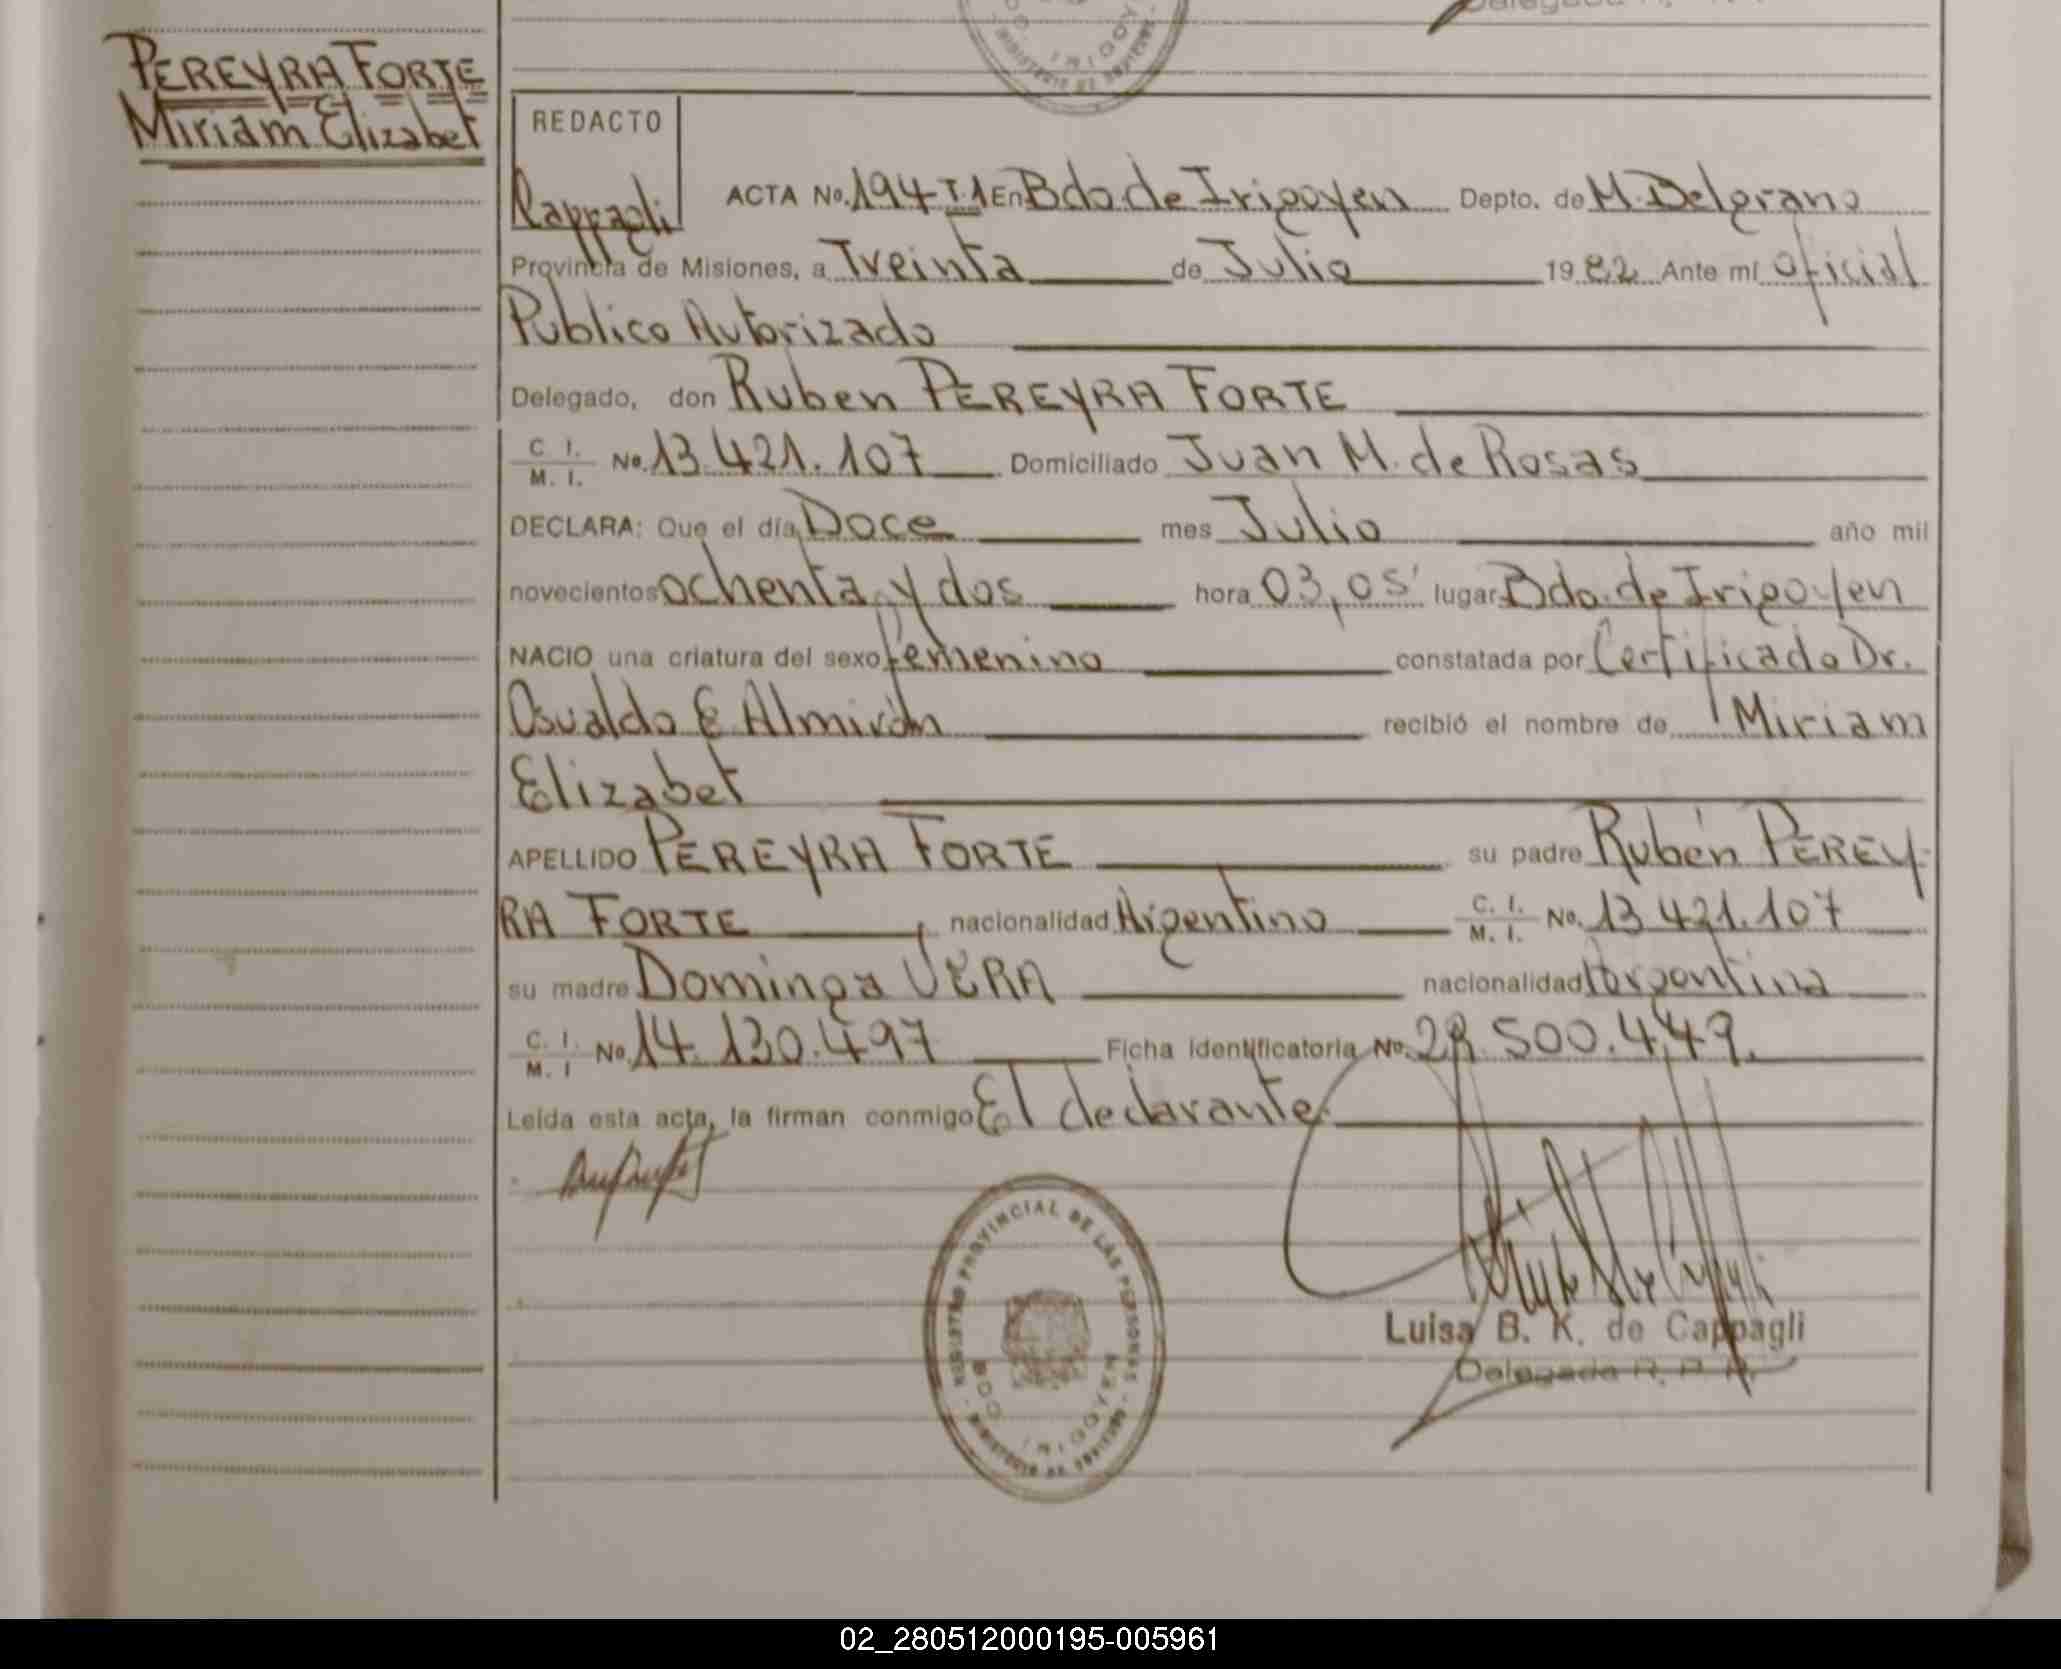 PEREYRA FORTE
Miriam Elizabet
REDACTO
Cappagli
ACTA No. 194 T.1 En Bdo. de Irigoyen Depto. de M. Belgrano
Provincia de Misiones, a Treinta de Julio 19 82 Ante mí oficial
Publico Autorizado
Delegado, don Ruben PEREYRA FORTE
C. I. / M. I. No. 13.421.107 Domiciliado Juan M. de Rosas
DECLARA: Que el día Doce mes Julio año mil
novecientos ochenta y dos hora 03,05' lugar Bdo. de Irigoyen
NACIO una criatura del sexo femenino constatada por Certificado Dr.
Osvaldo E. Almirón recibió el nombre de Miriam
Elizabet
APELLIDO PEREYRA FORTE su padre Rubén PEREY-
RA FORTE, nacionalidad Argentino C. I. / M. I. No. 13.421.107
su madre Dominga VERA nacionalidad Argentina
C. I. / M. I No. 14.130.497 Ficha identificatoria No. 29.500.449.
Leída esta acta, la firman conmigo El declarante.
REGISTRO PROVINCIAL DE LAS PERSONAS
BDO. IRIGOYEN
Luisa B. K. de Cappagli
Delegada R. P. P.
02_280512000195-005961